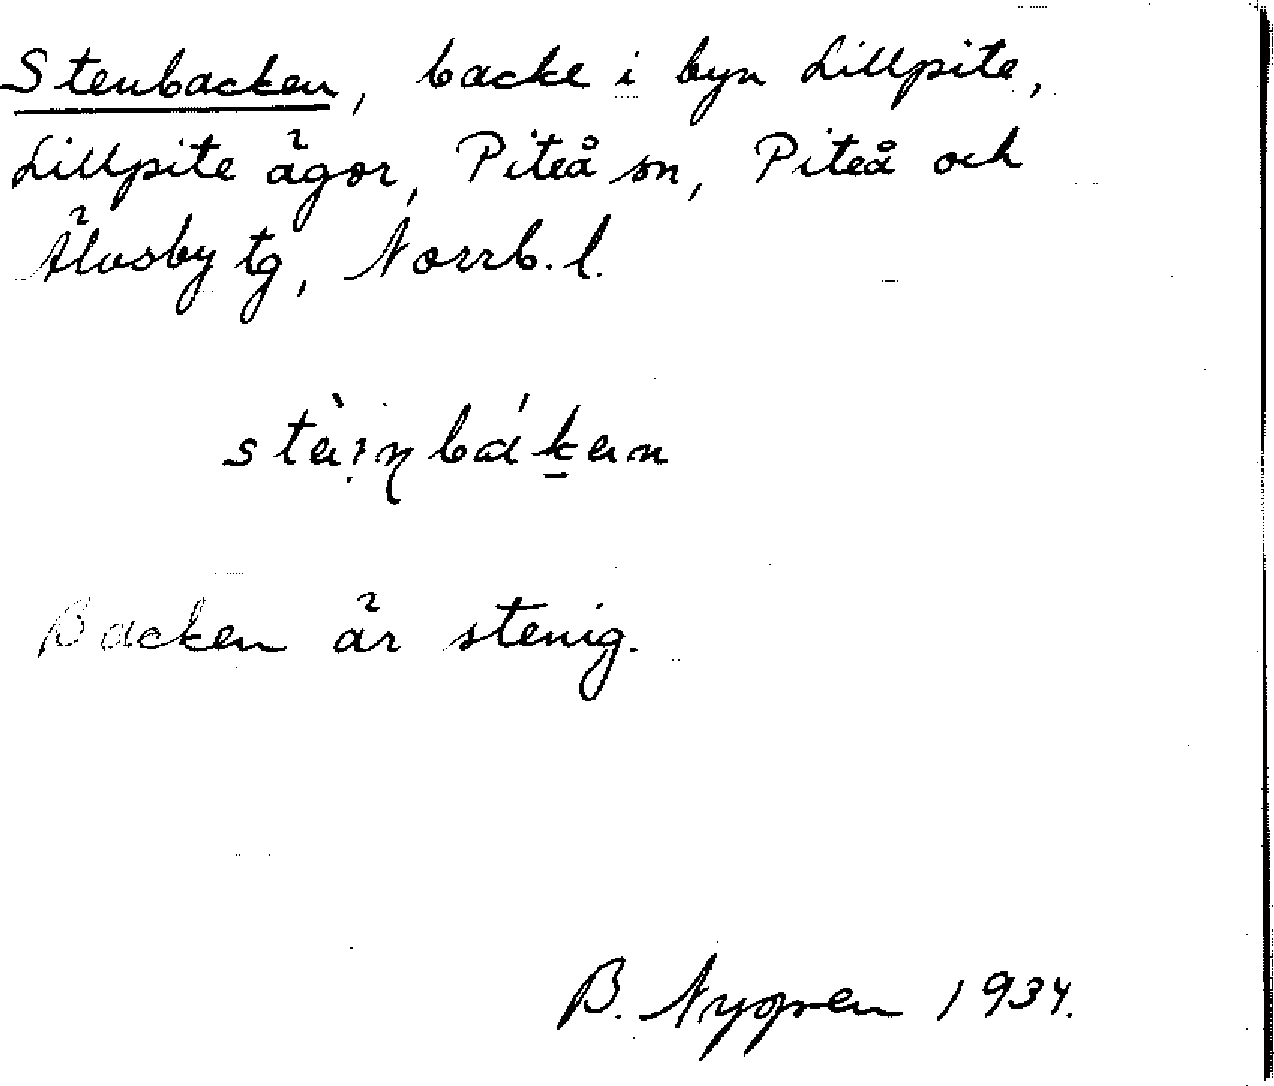 Stenbacken, backe i byn Lillpite,
Lillpite ägor, Piteå sn, Piteå och
Älvsby tg, Norrb. l.
Backen är stenig.
B. Nygren 1934.